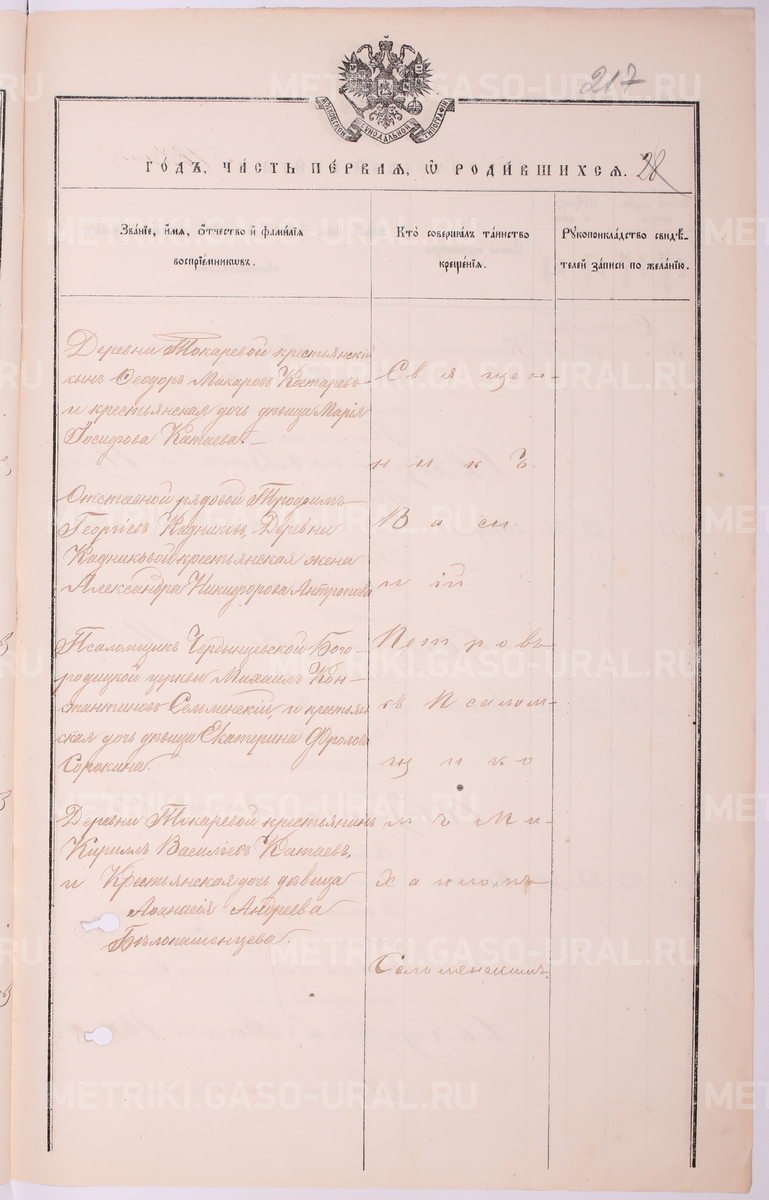 217
МОСКОВСКОЙ СѴНОДАЛЬНОЙ ТИПОГРАФІИ
ГО́ДЪ, ЧА́СТЬ ПЕ́РВАѦ, Ѡ҆ РОДИ́ВШИХСѦ. 28
Зва́нїе, и҆́мѧ, ѻ҆́тчество и҆ фами́лїѧ
воспрїе́мникωвъ.
Кто̀ соверша́лъ та́инство
креще́нїѧ.
Рꙋкоприкла́дство свидѣ́-
телей за́писи по жела́нїю.
Деревни Токаревой крестьянскій
сынъ Ѳеодоръ Макаровъ Костаревъ
и крестьянская дочь дѣвица Марія
Іосифова Катаева.
Отставной рядовой Трофимъ
Георгіевъ Кадниковъ, Деревни
Кадниковой крестьянская жена
Александра Никифорова Антропова
Псаломщикъ Чердынцевской Бого-
родицкой церкви Михаилъ Кон-
стантиновъ Сельменскій, и крестьян
ская дочь дѣвица Екатерина Фролова
Сорокина.
Деревни Токаревой крестьянинъ
Кириллъ Василіевъ Катаевъ,
и Крестьянская дочь дѣвица
Аѳанасія Андреева
Бѣлопашенцева.
Священ-
никъ
Васи
лій
Петровъ
съ Псалом-
щико
мъ Ми-
хаиломъ
Сельменскимъ
METRIKI.GASO-URAL.RU